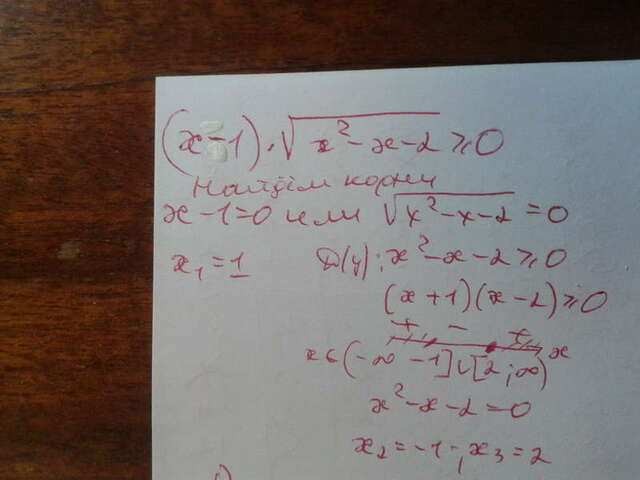 (x-1)·√(x²-x-2) ≥ 0
Найдём корни
x-1=0 или √(x²-x-2) = 0
x₁ = 1 D(y): x²-x-2 ≥ 0
(x+1)(x-2) ≥ 0
+ - +
x ∈ (-∞ -1] ∪ [2; ∞) x
x²-x-2=0
x₂=-1; x₃=2